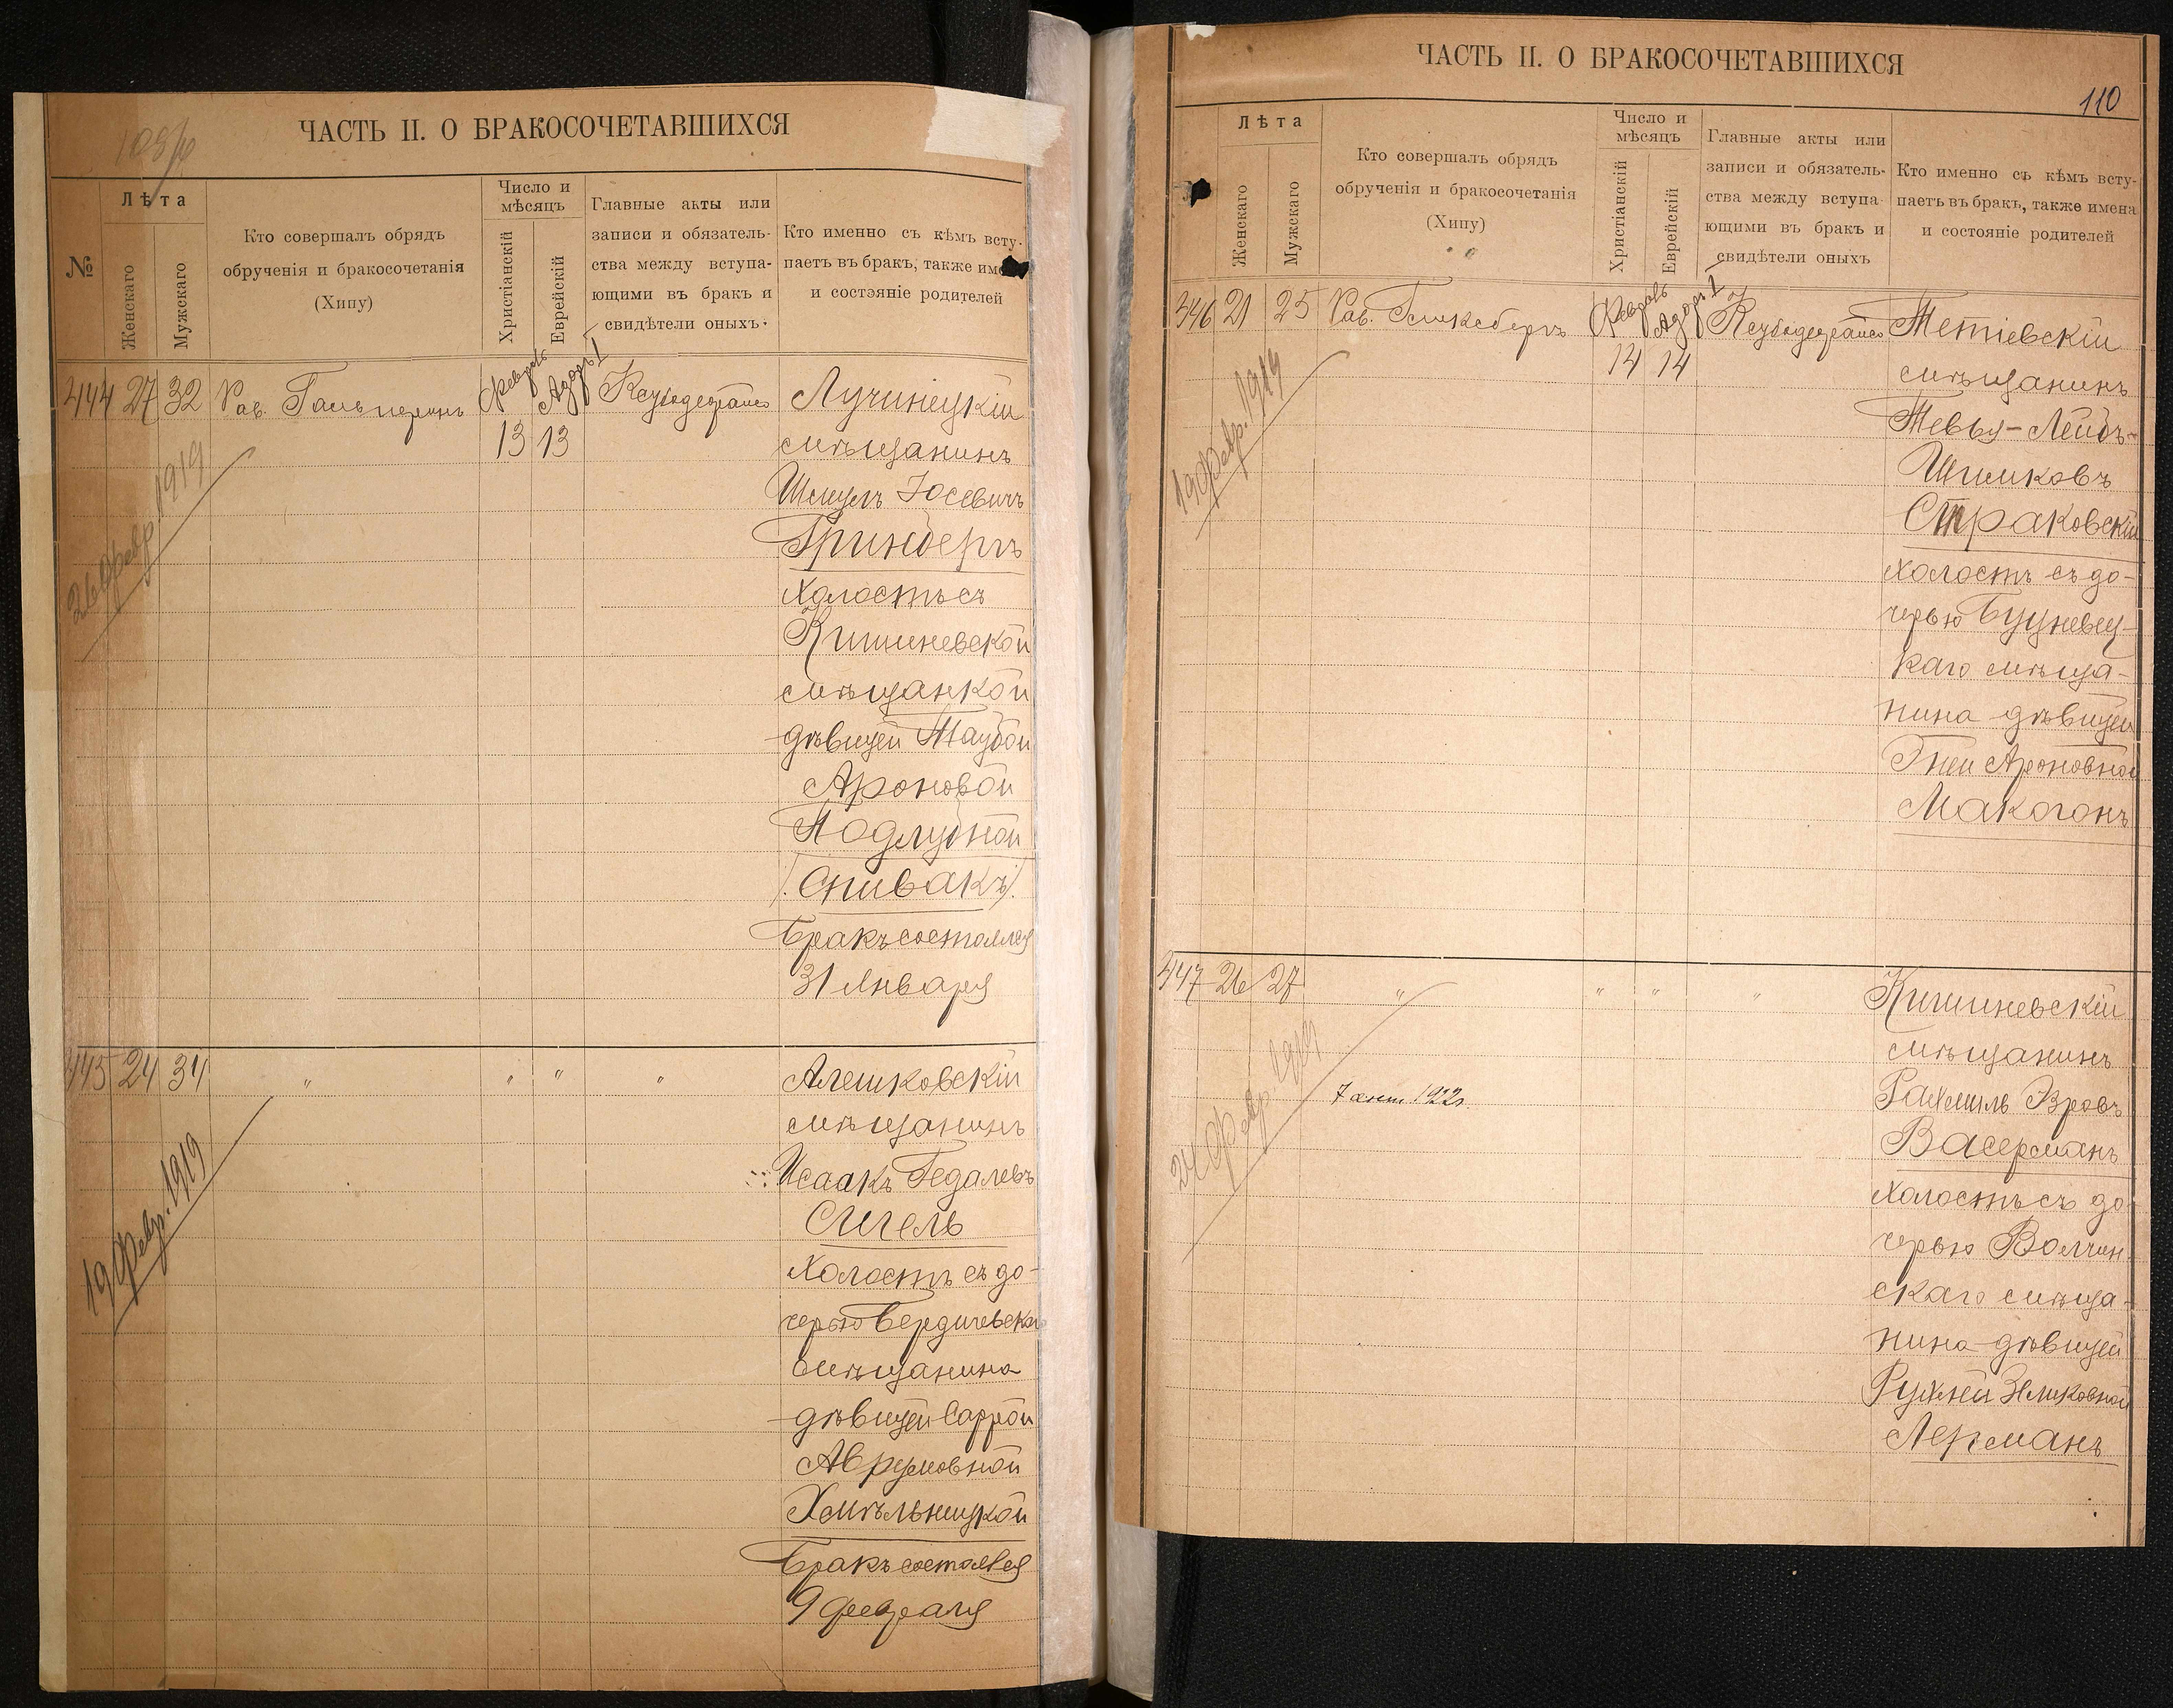 ЧАСТЬ II. О БРАКОСОЧЕТАВШИХСЯ
№
Лѣта
Женскаго
Мужскаго
Кто совершалъ обрядъ
обрученія и бракосочетанія
(Хипу)
Число и
мѣсяцъ
Христіанскій
Еврейскій
Главные акты или
записи и обязатель-
ства между вступа-
ющими въ бракъ и
свидѣтели оныхъ.
Кто именно съ кѣмъ всту-
паетъ въ бракъ, также
и состояніе родителей
444 27 32 Рав. Гальперинъ
Февраль Адоръ I
13 13
26 Февр. 1919
Лучинецкій
мѣщанинъ
Шмуль Іосевичъ
Гринбергъ
холостъ съ
Кишиневской
мѣщанкой
дѣвицей Таубой
Ароновой
Подлубной
(Спивакъ).
Бракъ состоялся
31 Января
445 24 34 " " " "
19 Февр. 1919
Алешковскій
мѣщанинъ
Исаакъ Гедалевъ
Сигель
Холостъ съ до-
черью Бердичевскаго
мѣщанина
дѣвицей Саррой
Аврумовной
Хмѣльницкой
Бракъ состоялся
9 февраля
ЧАСТЬ II. О БРАКОСОЧЕТАВШИХСЯ
110
Лѣта
Женскаго
Мужскаго
Кто совершалъ обрядъ
обрученія и бракосочетанія
(Хипу)
Число и
мѣсяцъ
Христіанскій
Еврейскій
Главные акты или
записи и обязатель-
ства между вступа-
ющими въ бракъ и
свидѣтели оныхъ
Кто именно съ кѣмъ всту-
паетъ въ бракъ, также имена
и состояніе родителей
21 25 Рав.
Февраль Адоръ I
14 14
19 Февр. 1919
Тетіевскій
мѣщанинъ
Тевья-Лейбъ-
Шимковъ
Страковскій
холостъ съ до-
черью Буцневец-
каго мѣща-
нина дѣвицей
Ароновной
Макогонъ
447 26 27 " " " "
24 Февр. 1919
7 1922г.
Кишиневскій
мѣщанинъ
Рахмиль Эзровъ
Васерманъ
холостъ съ до-
черью Волчин-
скаго мѣща-
нина дѣвицей
Рухлей Зеликовной
Лерманъ